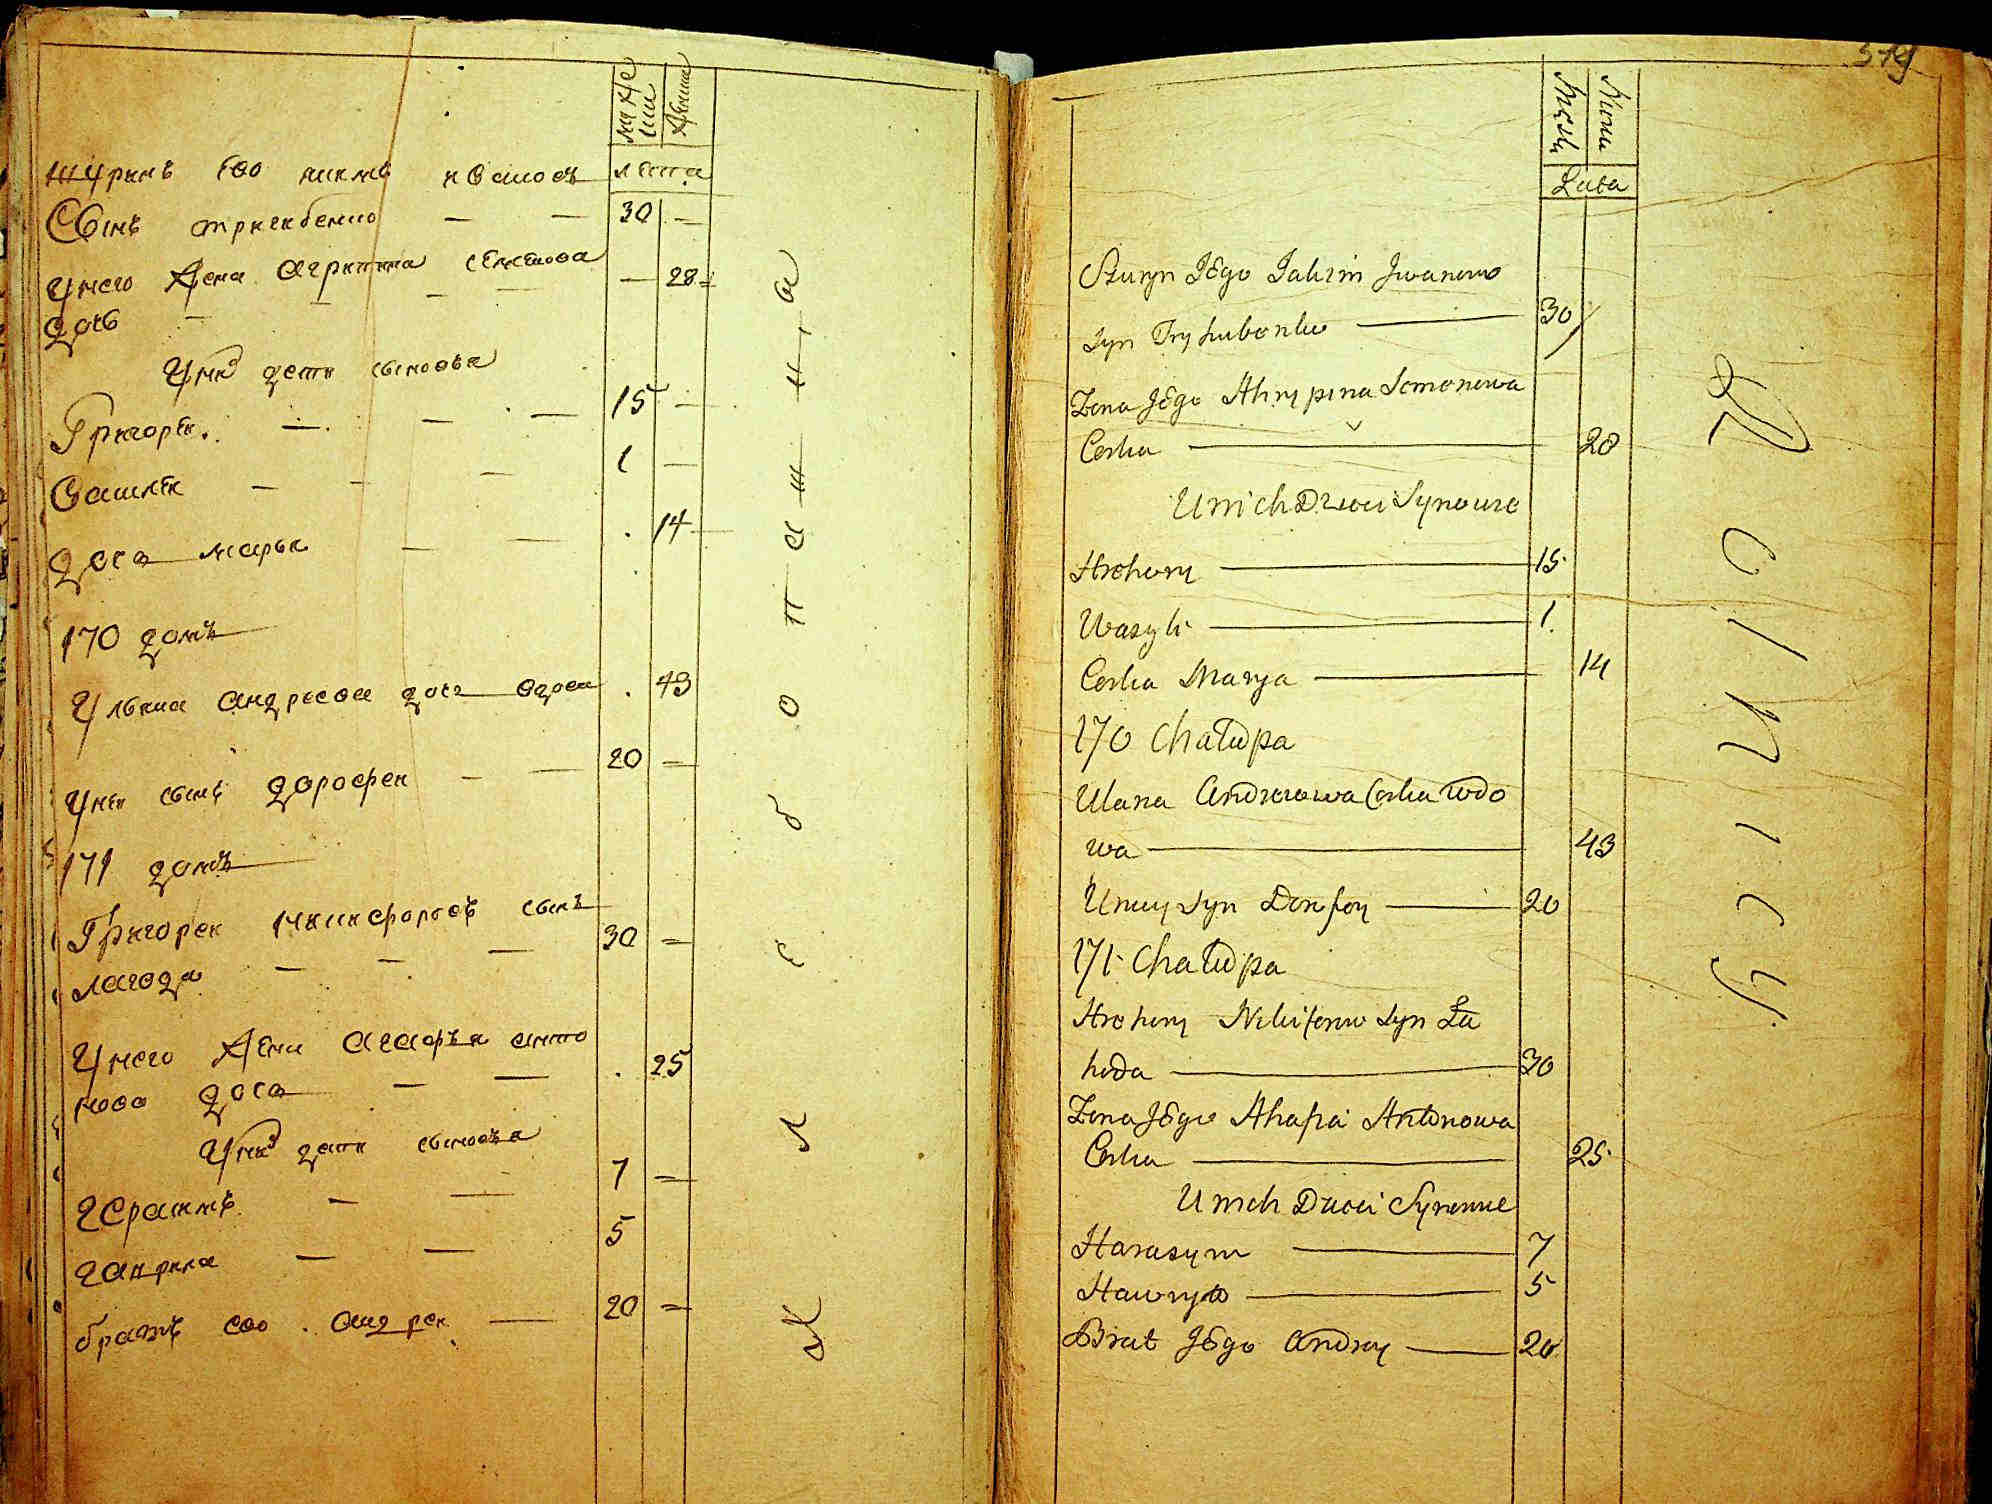 мужеска
женска
лѣта
Шуринъ его якимъ ивановъ
Сынъ тригубенко — — 30 —
У него жена агрипина семенова — 28
дочь — — — —
У них дети сыновья
Григорей — — — 15 —
Василей — — — 1 —
дочь марья — — 14
170 домъ
Ульяна андреева дочь вдова 43
У ней сынъ дорофей — — 20 —
171 домъ
Григорей никифоровъ сынъ
лагода — — — 30 —
У него жена агафья анто
нова дочь — — 25
У них дети сыновья
герасимъ — — 7 —
гаврила — — 5
братъ его андрей — 20 —
хлебопашица
319
Męska
Żińska
Lata
Szuryn Jego Jakim Iwanow
Syn Tryhubenko — 30
Żona Jego Ahrypina Semonowa
Corka — 28
U nich Dzieci Synowie
Hrehory — 15
Wasyli — 1
Corka Marya — 14
170 Chałupa
Ulana Andreiowa Corka wdo
wa — 43
U niey Syn Dorofey — 20
171 Chałupa
Hrehory Nikiforow Syn Ła
hoda — 30
Żona Jego Ahafia Antonowa
Corka — 25
U nich Dzieci Synowie
Harasym — 7
Hawryło — 5
Brat Jego Andrey — 20
Rolnicy